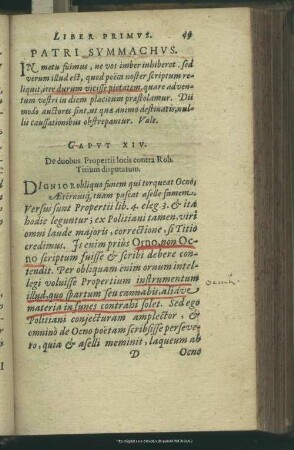 LIBER PRIMVS. 49
PATRI SYMMACHVS.
IN metu fuimus, ne vos imber inhiberet. sed
verum illud est, quod poëta noster scriptum re-
liquit, iter durum vicisse pietatem. quare adven-
tum vestri in diem placitum præstolamur. Dii
modo auctores sint, ut quæ animo destinatis, nul-
lis caussationibus obstrepantur. Vale.
CAPVT XIV.
De duobus Propertii locis contra Rob.
Titium disputatum.
DIGNIOR obliquo funem qui torqueat Ocno,
Æternusq, tuam pascat aselle famem.
Versus sunt Propertii lib. 4. eleg. 3. & ita
hodie leguntur; ex Politiani tamen, viri
omni laude majoris, correctione, si Titio
credimus. Is enim prius Orno, non Oc-
no scriptum fuisse & scribi debere con-
tendit. Per obliquam enim ornum intel-
legi voluisse Propertium instrumentum
illud, quo spartum seu cannabis, aliave
materia in funes contrahi solet. Sed ego
Politiani conjecturam amplector, &
omninò de Ocno poëtam scribsisse perseve-
ro, quia & aselli meminit, laqueum ab
D Ocno